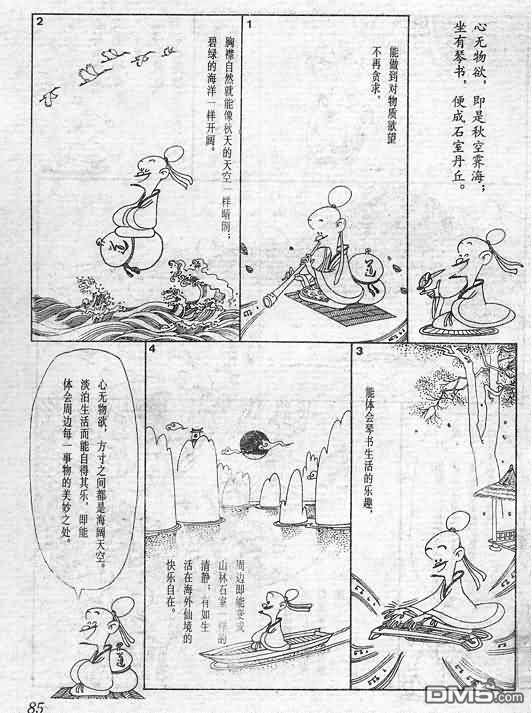 心无物欲，即是秋空霁海；
坐有琴书，便成石室丹丘。
1
能做到对物质欲望
不再贪求，
2
胸襟自然就能像秋天的天空一样晴朗；
碧绿的海洋一样开阔。
3
能体会琴书生活的乐趣，
4
周边即能变成
山林石室一样的
清静；有如生
活在海外仙境的
快乐自在。
心无物欲，方寸之间都是海阔天空。
淡泊生活而能自得其乐，即能
体会周边每一事物的美妙之处。
道
道
85
DM5.com